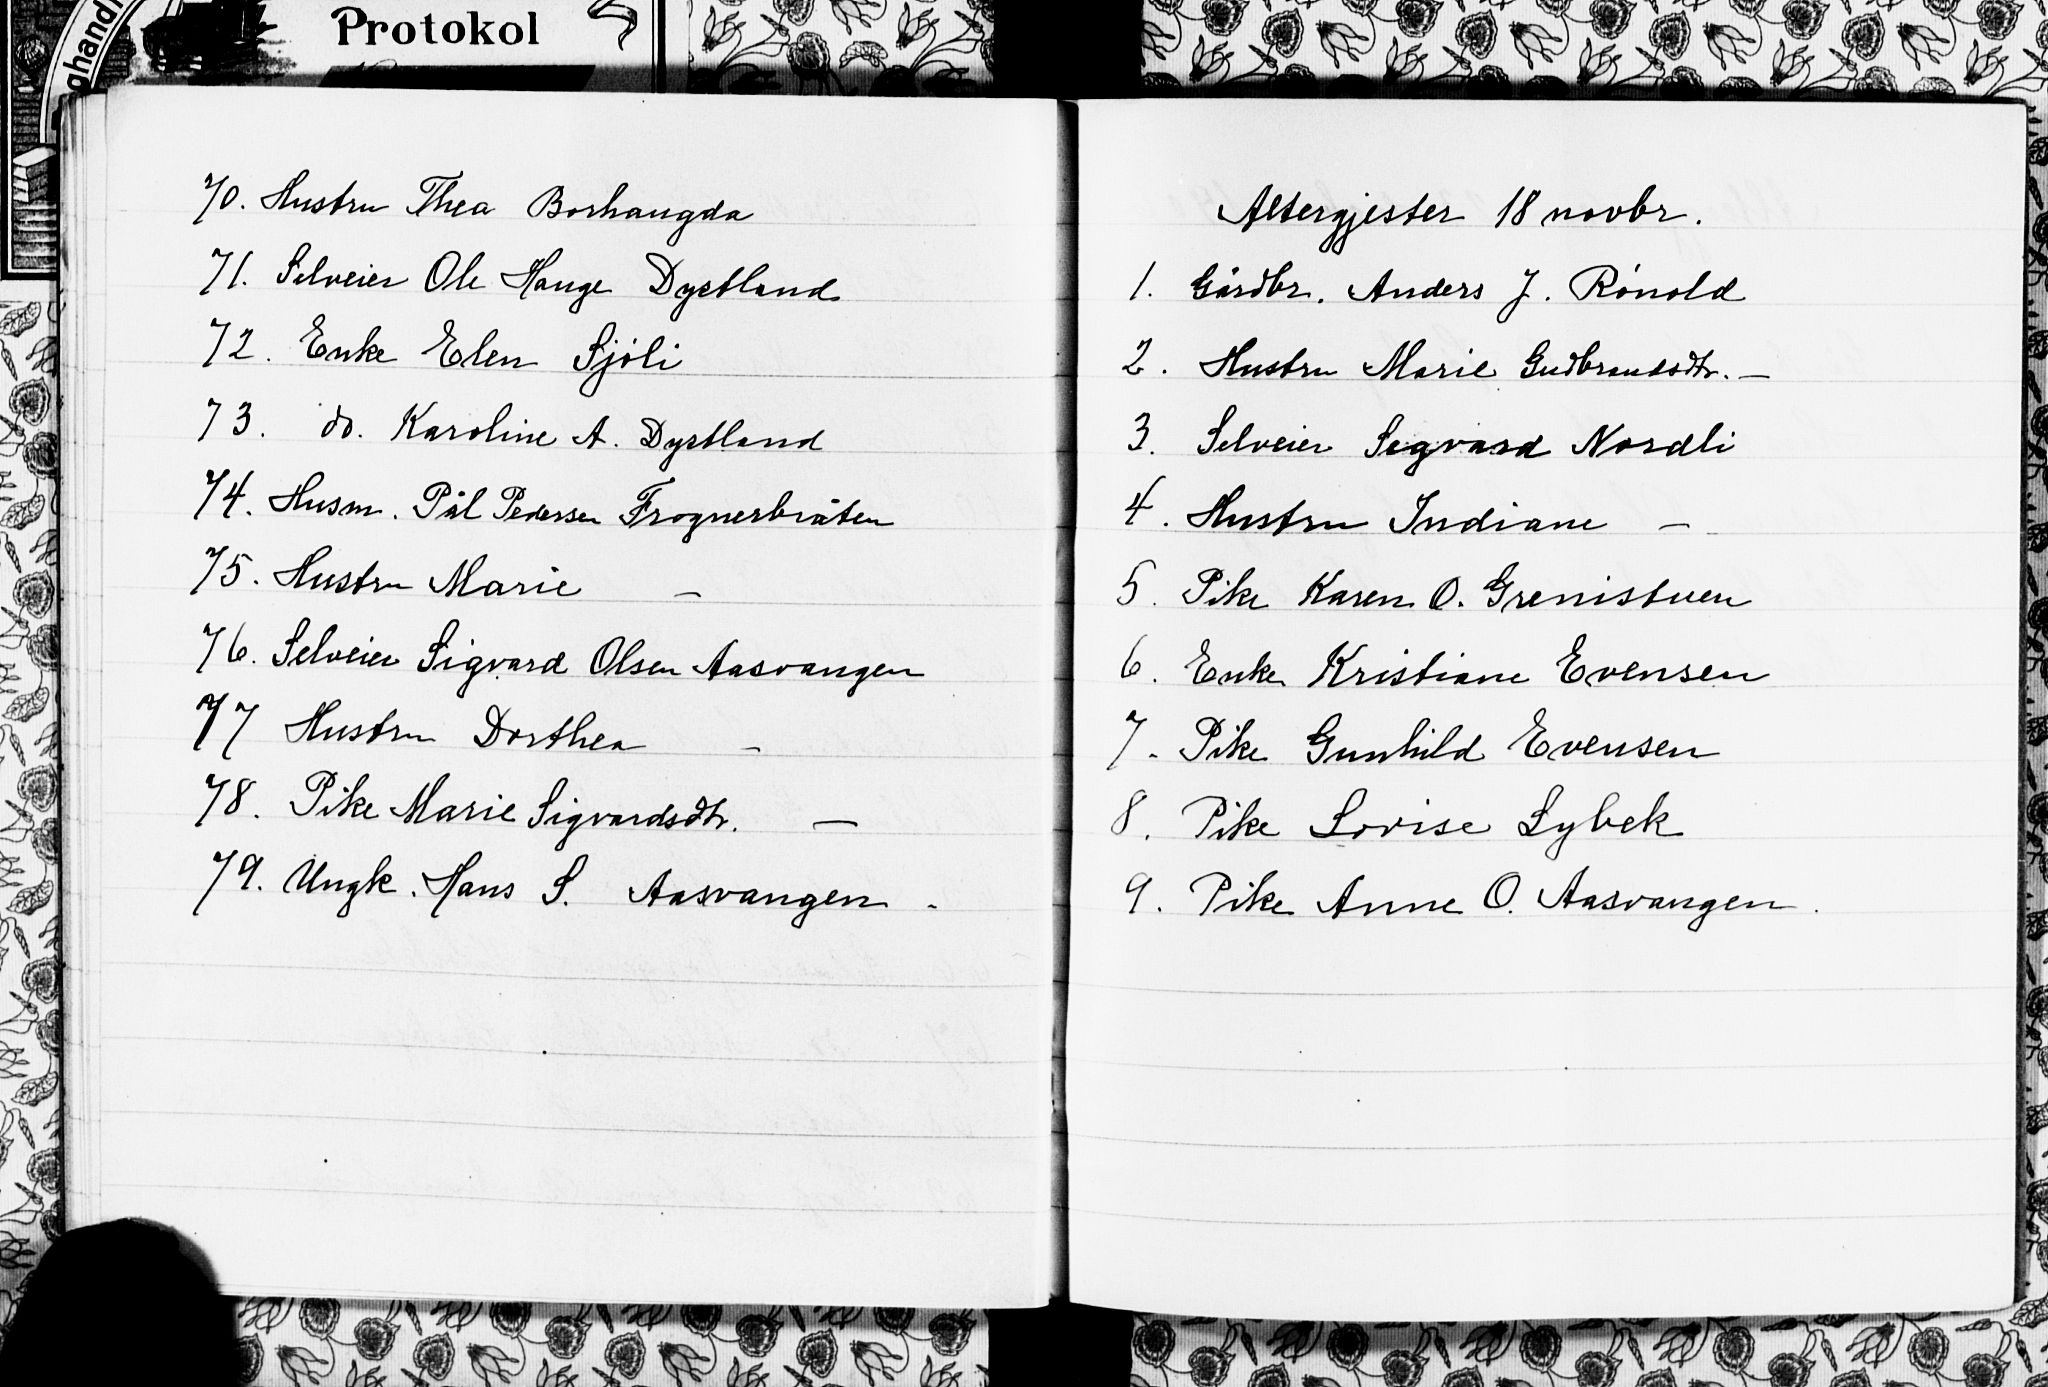 Protokol
70. Hustru Thea Borhaugda
71. Selveier Ole Hauge Dystland
72. Enke Elen Sjøli
73. do. Karoline A. Dystland
74. Husm. Pål Pedersen Frognerbråten
75. Hustru Marie —
76. Selveier Sigvard Olsen Aasvangen
77 Hustru Dorthea —
78. Pike Marie Sigvardsdtr. —
79. Ungk. Hans S. Aasvangen.
Altergjester 18 novbr.
1. Gårdbr. Anders J. Rónold
2. Hustru Marie Gudbrandsdtr. —
3. Selveier Segvard Nordli
4. Hustru Indiane —
5. Pike Karen O. Grenistuen
6. Enke Kristiane Evensen
7. Pike Gunhild Evensen
8. Pike Lovise Lybek
9. Pike Anne O. Aasvangen.